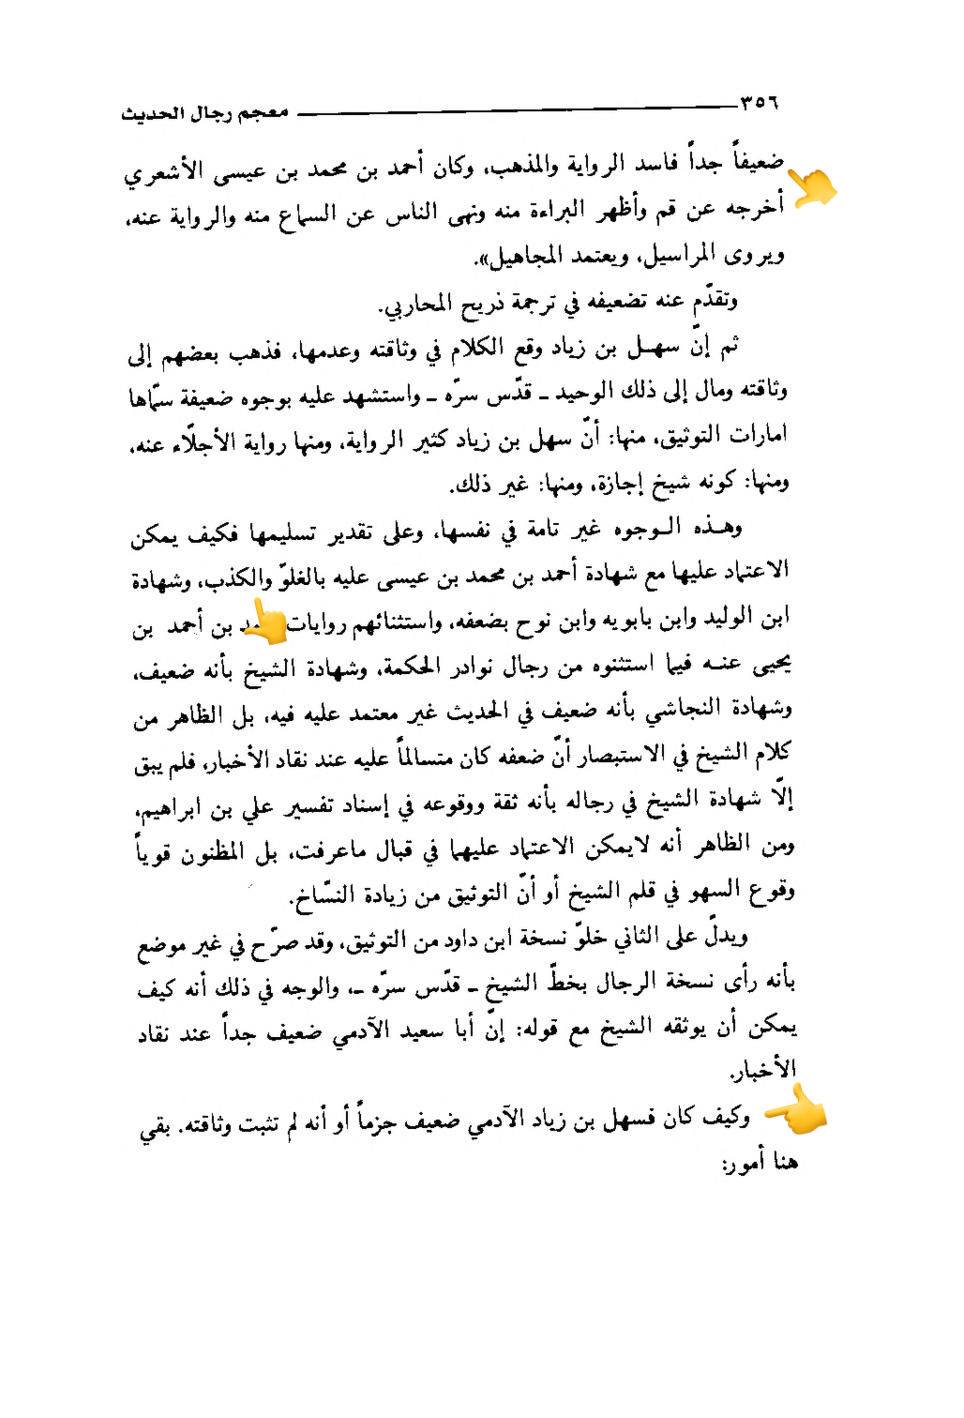 ٣٥٦ معجم رجال الحديث
ضعيفاً جداً فاسد الرواية والمذهب، وكان أحمد بن محمد بن عيسى الأشعري
أخرجه عن قم وأظهر البراءة منه ونهى الناس عن السماع منه والرواية عنه،
ويروى المراسيل، ويعتمد المجاهيل».
وتقدّم عنه تضعيفه في ترجمة ذريح المحاربي.
ثم إنّ سهل بن زياد وقع الكلام في وثاقته وعدمها، فذهب بعضهم إلى
وثاقته ومال إلى ذلك الوحيد ـ قدّس سرّه ـ واستشهد عليه بوجوه ضعيفة سمّاها
امارات التوثيق، منها: أنّ سهل بن زياد كثير الرواية، ومنها رواية الأجلّاء عنه،
ومنها: كونه شيخ إجازة، ومنها: غير ذلك.
وهذه الوجوه غير تامة في نفسها، وعلى تقدير تسليمها فكيف يمكن
الاعتماد عليها مع شهادة أحمد بن محمد بن عيسى عليه بالغلوّ والكذب، وشهادة
ابن الوليد وابن بابويه وابن نوح بضعفه، واستثنائهم روايات بن أحمد بن
يحيى عنه فيما استثنوه من رجال نوادر الحكمة، وشهادة الشيخ بأنه ضعيف،
وشهادة النجاشي بأنه ضعيف في الحديث غير معتمد عليه فيه، بل الظاهر من
كلام الشيخ في الاستبصار أنّ ضعفه كان متسالماً عليه عند نقاد الأخبار، فلم يبق
إلّا شهادة الشيخ في رجاله بأنه ثقة ووقوعه في إسناد تفسير علي بن ابراهيم،
ومن الظاهر أنه لايمكن الاعتماد عليهما في قبال ماعرفت، بل المظنون قوياً
وقوع السهو في قلم الشيخ أو أنّ التوثيق من زيادة النسّاخ.
ويدلّ على الثاني خلوّ نسخة ابن داود من التوثيق، وقد صرّح في غير موضع
بأنه رأى نسخة الرجال بخطّ الشيخ ـ قدّس سرّه ـ، والوجه في ذلك أنه كيف
يمكن أن يوثقه الشيخ مع قوله: إنّ أبا سعيد الآدمي ضعيف جداً عند نقاد
الأخبار.
وكيف كان فسهل بن زياد الآدمي ضعيف جزماً أو أنه لم تثبت وثاقته. بقي
هنا أمور: